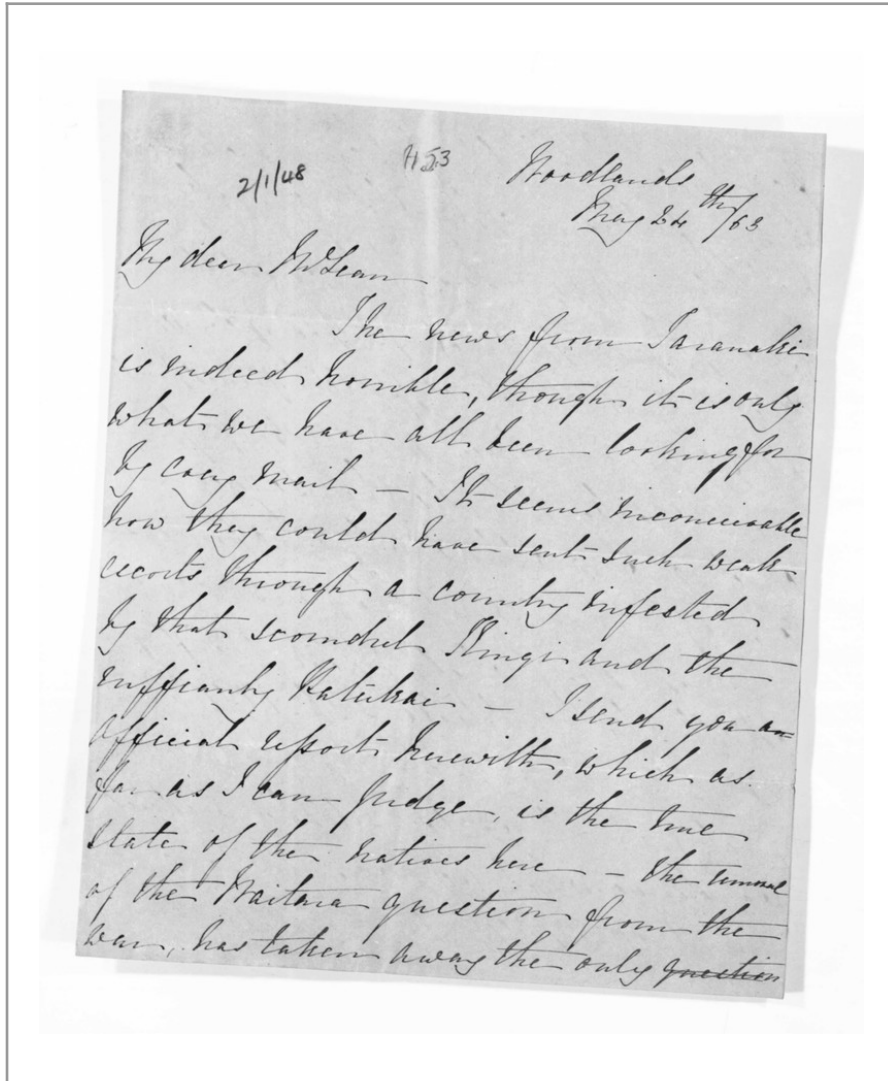 2/1/48
453
Woodlands
May 24th/63
My dear McLean
The news from Taranaki
is indeed horrible, though it is only
what we have all been looking for
by every mail – It seems inconceivable
how they could have sent such weak
escorts through a country infested
by that scoundrel Kingi and the
ruffianly Hatukai – I send you an
official report herewith, which as
far as I can judge, is the true
state of the natives here – the removal
of the Waitara question from the
war, has taken away the only question